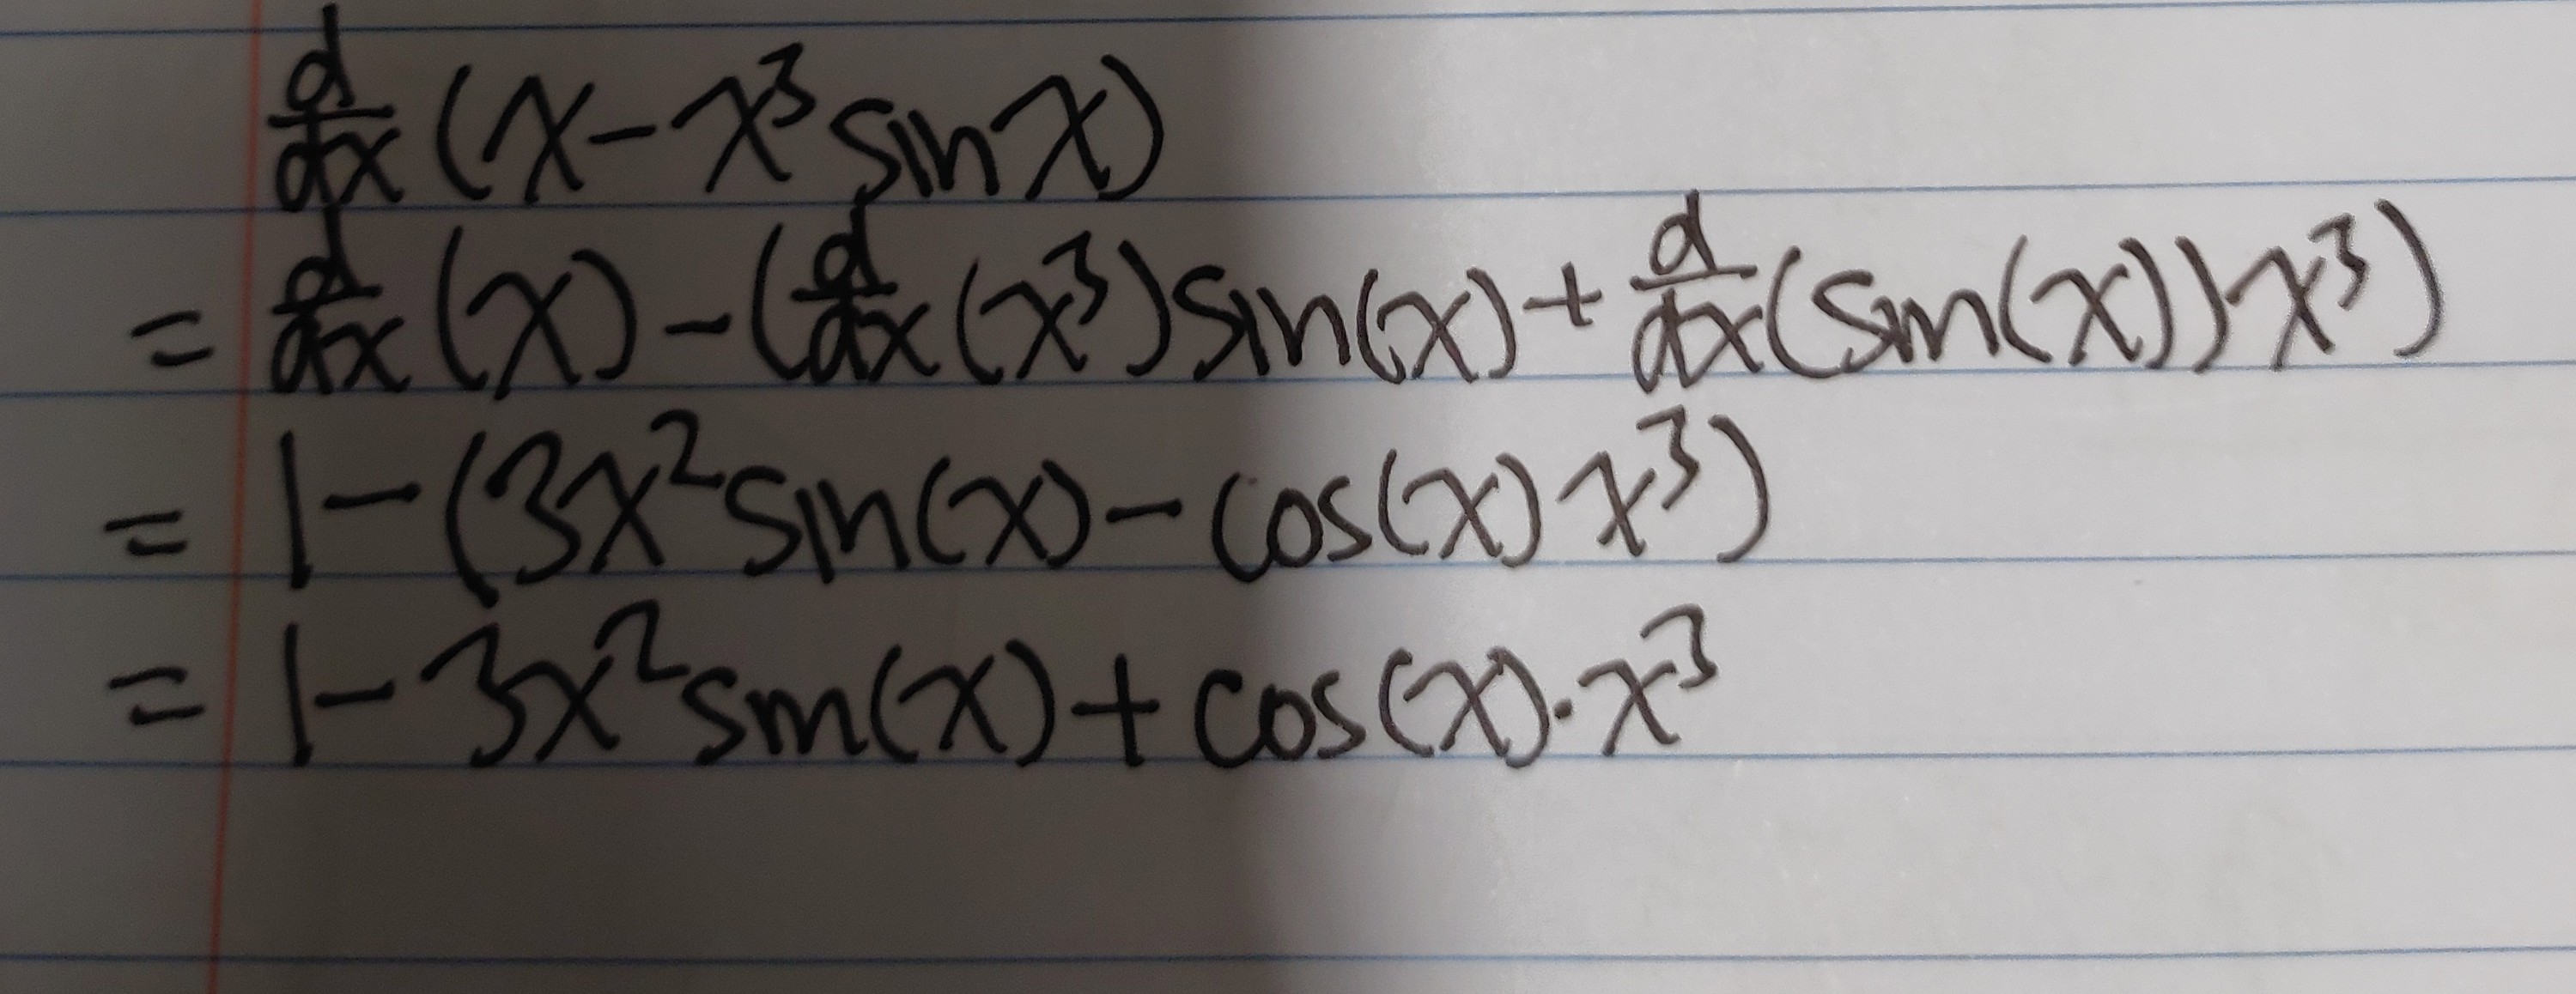 d/dx (x - x³ sin x)
= d/dx (x) - (d/dx (x³) sin(x) + d/dx (sin(x)) x³)
= 1 - (3x² sin(x) - cos(x) x³)
= 1 - 3x² sin(x) + cos(x) · x³